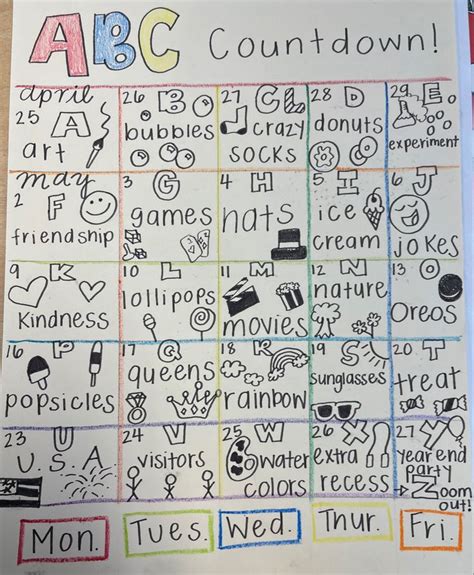 ABC Countdown!
april
25 A
art
26 B
bubbles
27 C
crazy
socks
28 D
donuts
29 E
experiment
may
2 F
friendship
3 G
games
4 H
hats
5 I
ice
cream
6 J
jokes
9 K
Kindness
10 L
lollipops
11 M
movies
12 N
nature
13 O
Oreos
16 P
popsicles
17 Q
queens
18 R
rainbow
19 S
sunglasses
20 T
treat
23 U
U.S.A.
24 V
visitors
25 W
water
colors
26 X
extra
recess
27 Y
year end
party
Zoom
out!
Mon. Tues. Wed. Thur. Fri.